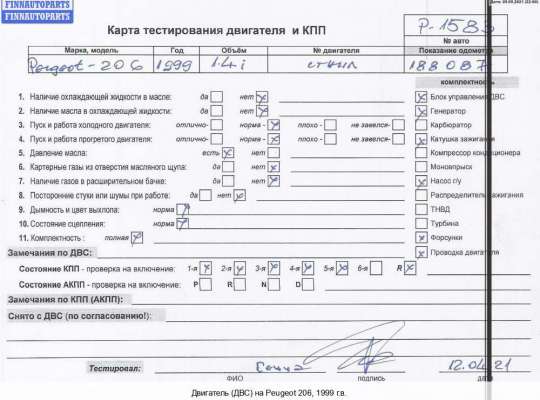 Дата: 09.09.2021
FINNAUTOPARTS
FINNAUTOPARTS
Карта тестирования двигателя и КПП
Р-1583
№ авто
Марка, модель Год Объём № двигателя Показание одометра
Peugeot-206 1999 1.4i 188087
комплектность
1. Наличие охлаждающей жидкости в масле: да нет Блок управления ДВС
2. Наличие масла в охлаждающей жидкости: да нет Генератор
3. Пуск и работа холодного двигателя: отлично- норма- плохо- не завелся- Карбюратор
4. Пуск и работа прогретого двигателя: отлично- норма- плохо- не завелся- Катушка зажигания
5. Давление масла: есть нет Компрессор кондиционера
6. Картерные газы из отверстия масляного щупа: да нет Моновпрыск
7. Наличие газов в расширительном бачке: да нет Насос г/у
8. Посторонние стуки или шумы при работе: да нет Распределитель зажигания
9. Дымность и цвет выхлопа: норма ТНВД
10. Состояние сцепления: норма Турбина
11. Комплектность: полная Форсунки
Замечания по ДВС: Проводка двигателя
Состояние КПП - проверка на включение: 1-я 2-я 3-я 4-я 5-я 6-я R
Состояние АКПП - проверка на включение: P R N D
Замечания по КПП (АКПП):
Снято с ДВС (по согласованию!):
Тестировал: 12.04.21
ФИО подпись дата
Двигатель (ДВС) на Peugeot 206, 1999 г.в.